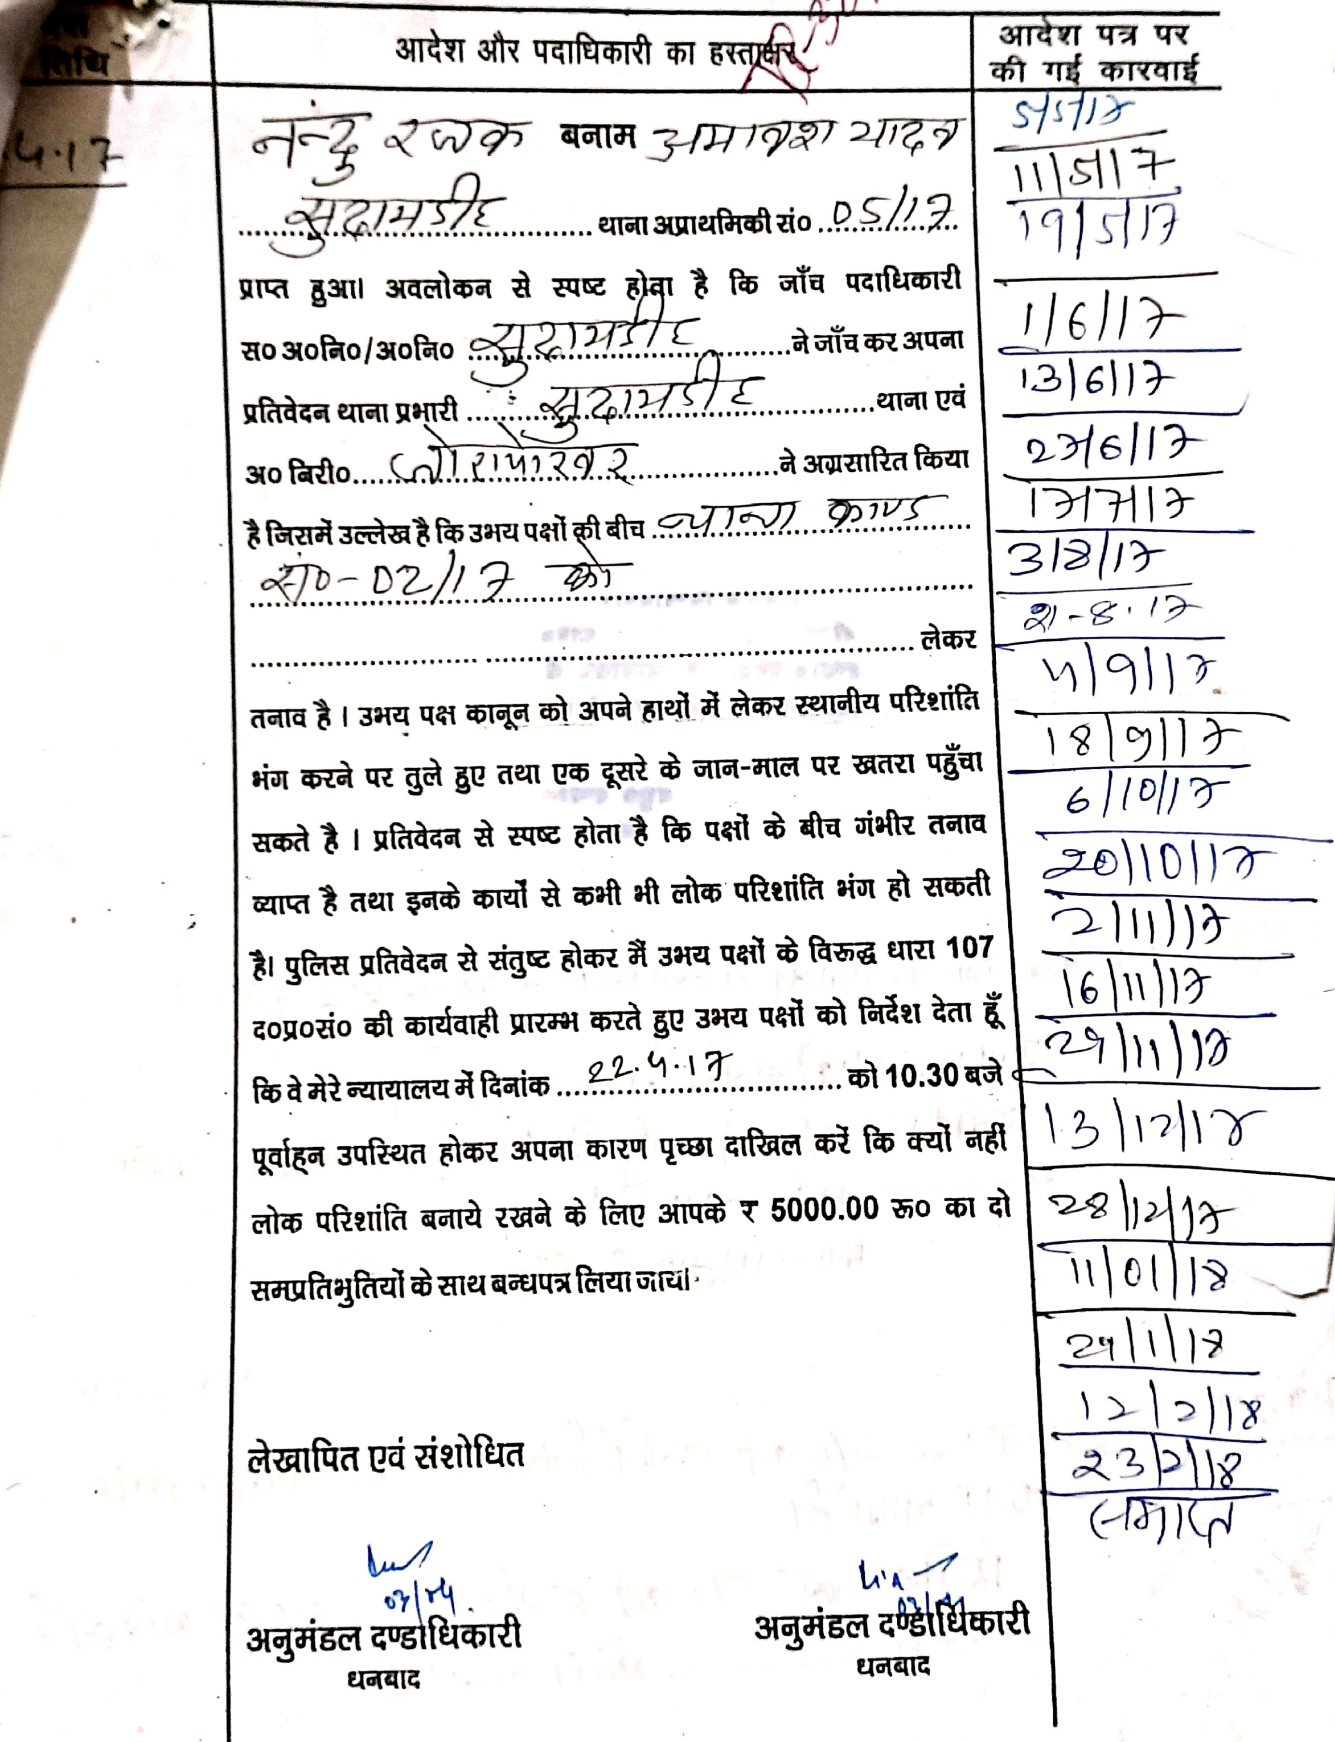 तिथि
आदेश और पदाधिकारी का हस्ताक्षर
आदेश पत्र पर
की गई कारवाई
.4.17
नन्दु रजक बनाम यादव
सुदामडीह थाना अप्राथमिकी सं० 05/17
प्राप्त हुआ। अवलोकन से स्पष्ट होता है कि जाँच पदाधिकारी
स० अ०नि०/अ०नि० सुदामडीह ने जाँच कर अपना
प्रतिवेदन थाना प्रभारी सुदामडीह थाना एवं
अ० बिरी० जोरापोखर ने अग्रसारित किया
है जिसमें उल्लेख है कि उभय पक्षों की बीच थाना काण्ड
सं०-02/17 को
लेकर
तनाव है । उभय पक्ष कानून को अपने हाथों में लेकर स्थानीय परिशांति
भंग करने पर तुले हुए तथा एक दूसरे के जान-माल पर खतरा पहुँचा
सकते है । प्रतिवेदन से स्पष्ट होता है कि पक्षों के बीच गंभीर तनाव
व्याप्त है तथा इनके कार्यों से कभी भी लोक परिशांति भंग हो सकती
है। पुलिस प्रतिवेदन से संतुष्ट होकर मैं उभय पक्षों के विरूद्ध धारा 107
द०प्र०सं० की कार्यवाही प्रारम्भ करते हुए उभय पक्षों को निर्देश देता हूँ
कि वे मेरे न्यायालय में दिनांक 22.4.17 को 10.30 बजे
पूर्वाह्न उपस्थित होकर अपना कारण पृच्छा दाखिल करें कि क्यों नहीं
लोक परिशांति बनाये रखने के लिए आपके ₹ 5000.00 रू० का दो
समप्रतिभुतियों के साथ बन्धपत्र लिया जाय।
लेखापित एवं संशोधित
03/04
03/04
अनुमंडल दण्डाधिकारी
धनबाद
अनुमंडल दण्डाधिकारी
धनबाद
5/5/17
11/5/17
19/5/17
1/6/17
13/6/17
27/6/17
17/7/17
3/8/17
21-8.17
4/9/17
18/9/17
6/10/17
20/10/17
2/11/17
16/11/17
29/11/17
13/12/17
28/12/17
11/01/18
29/1/18
12/2/18
23/2/18
समाप्त